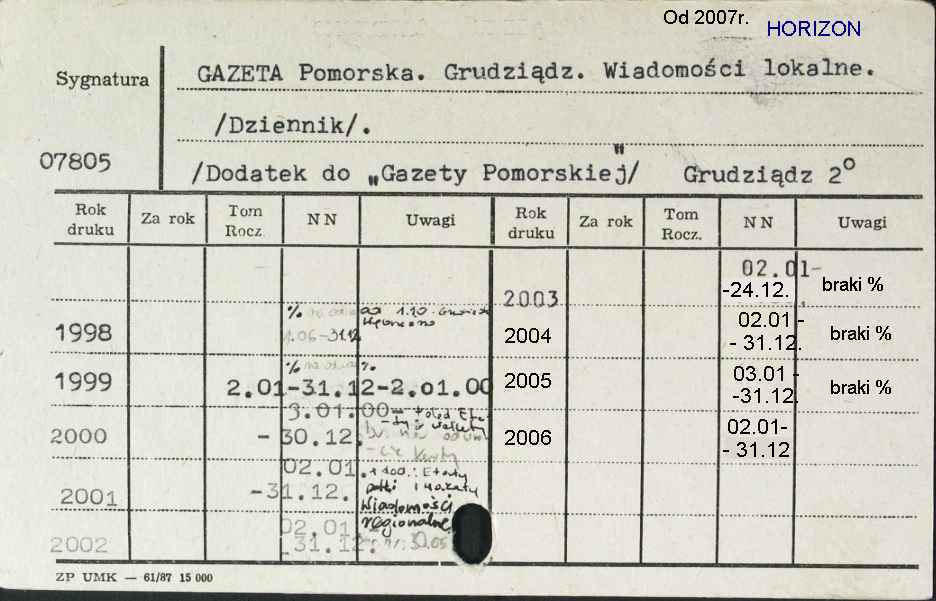 Od 2007r. HORIZON
Sygnatura
07805
GAZETA Pomorska. Grudziądz. Wiadomości lokalne.
/Dziennik/.
/Dodatek do „Gazety Pomorskiej"/ Grudziądz 2°
Rok druku Za rok Tom Rocz. NN Uwagi Rok druku Za rok Tom Rocz. NN Uwagi
2003 02.01-
-24.12. braki %
1998 % 1.06-31.12 od 1.10.
2004 02.01 -
- 31.12. braki %
1999 2.01-31.12-2.01.00 %
2005 03.01 -
-31.12. braki %
2000 3.01.00-
- 30.12.
2006 02.01-
- 31.12
2001 02.01
-31.12.
Wiadomości
regionalne
2002 02.01
-31.12.
ZP UMK — 61/87 15 000